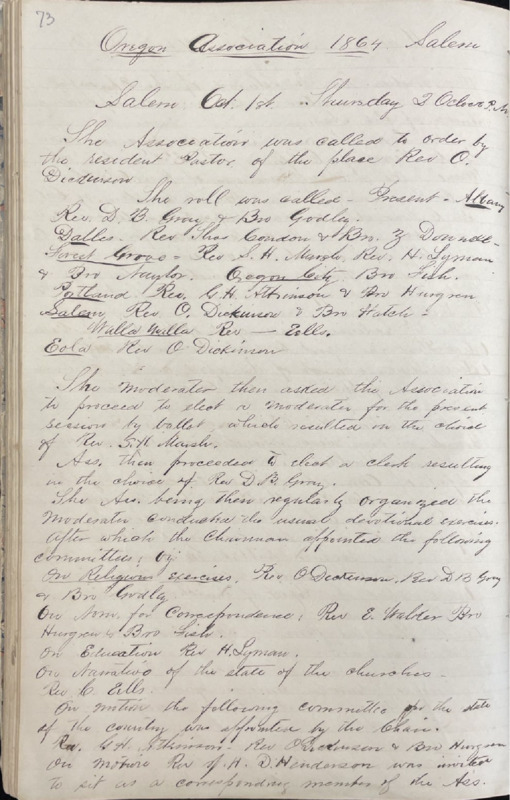 73
Oregon Association 1864 Salem
Salem Oct. 1st. Thursday 2 Oclock P.M
The Association was called to order by
the resident Pastor of the place Rev O.
Dickinson
The roll was called - Present - Albany
Rev. D. B. Gray & Bro Godley.
Dalles. Rev Thos Condon & Bro. Z Donnell
Forest Grove - Rev S. H. Marsh, Rev. H. Lyman
& Bro Naylor. Oregon City, Bro Fish.
Portland Rev. G. H. Atkinson & Bro Hurgren
Salem, Rev O. Dickinson & Bro Hatch -
Walla Walla Rev — Eells.
Eola Rev O Dickinson
The moderator then asked the Association
to proceed to elect a moderator for the present
session by ballot, which resulted in the choice
of Rev. S. H. Marsh.
Ass. then proceeded to elect a clerk resulting
in the choice of Rev D. B. Gray.
The Ass. being then regularly organized the
Moderator conducted the usual devotional exercises.
After which the Chairman appointed the following
committees; viz
On Religious exercises, Rev O Dickinson, Rev D B Gray
& Bro Godley
On Nom. for Correspondence; Rev E. Walker Bro
Hurgren & Bro Fish.
On Education Rev H. Lyman.
On Narrative of the state of the churches -
Rev C. Eells.
On motion the following committee on the state
of the country was appointed by the Chair.
Rev. G. H. Atkinson. Rev O Dickinson & Bro Hurgren
On Motion Rev H. D. Henderson was invited
to sit as a corresponding member of the Ass.